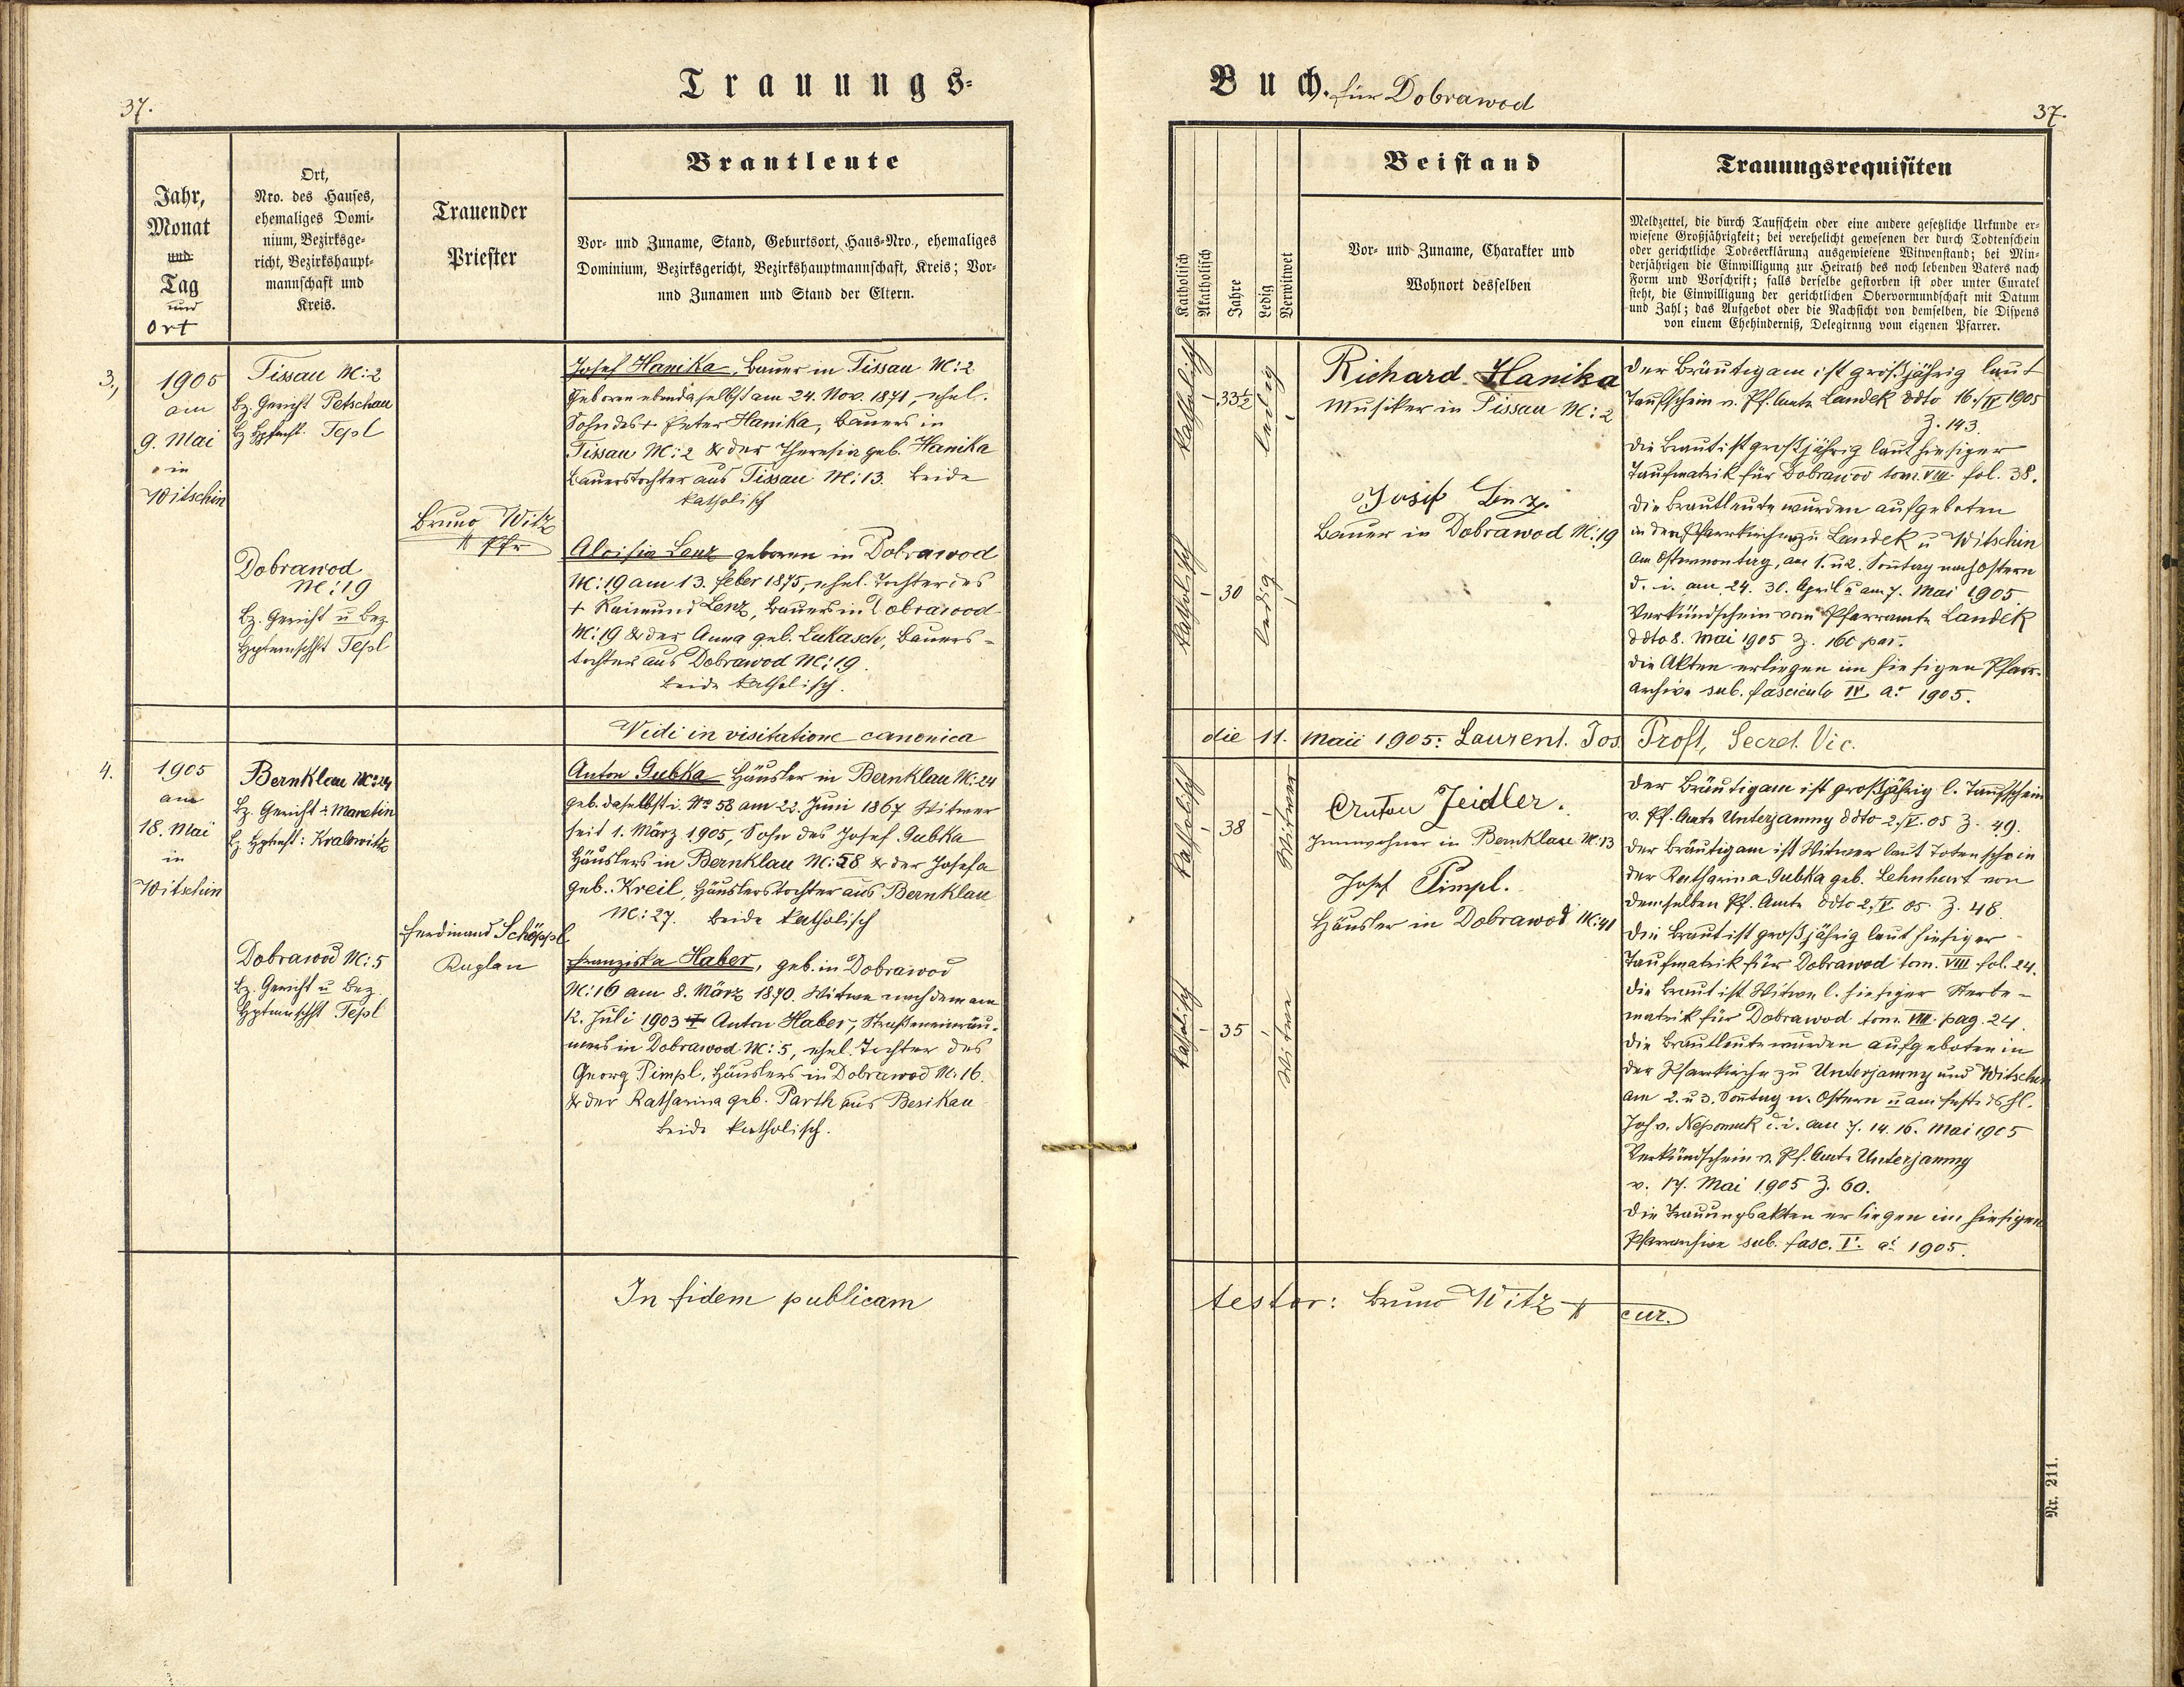 Trauungs-
37.
Brautleute
Jahr,
Monat
und
Tag
und
Ort
Ort,
Nro. des Hauses,
ehemaliges Domi-
nium, Bezirksge-
richt, Bezirkshaupt-
mannschaft und
Kreis.
Trauender
Priester
Vor- und Zuname, Stand, Geburtsort, Haus-Nro., ehemaliges
Dominium, Bezirksgericht, Bezirkshauptmannschaft, Kreis; Vor-
und Zunamen und Stand der Eltern.
3.,
1905
am
9. Mai
in
Witschin
Tissau N: 2
Bz. Gericht Petschau
Tepl
Dobrawod
N: 19
Bz. Gericht u Bez.
Hptmschft Tepl
Bruno Witz
Pfr
Josef Hanika, Bauer in Tissau N: 2
Geboren ebendaselbst am 24. Nov. 1871, ehel.
Sohn des + Peter Hanika, Bauers in
Tissau N: 2 & der Theresia geb. Hanika
Bauerstochter aus Tissau N: 13. beide
katholisch
Aloisia Lenz geboren in Dobrawod
N: 19 am 13. feber 1875, ehel. Tochter des
+ Raimund Lenz, Bauers in Dobrawood
N: 19 & der Anna geb. Lukasch, Bauers-
tochter aus Dobrawod N: 19.
beide katholisch.
Vidi in visitatione canonica
4.
1905
am
18. Mai
in
Witschin
Bernklau No: 24
Bz. Gericht: Manetin
Bz. Hptmft: Kralowitz
Dobrawod N: 5
Bz. Gericht u Bez.
Hptmschft Tepl
Ferdinand Schöppl
Kaplan
Anton Gubka Häusler in Bernklau N: 24
geb. daselbst i. No 58 am 22. Juni 1867 Witwer
seit 1. März 1905, Sohn des Josef Gubka
Häuslers in Bernklau N: 58 & der Josefa
geb. Kreil, Häuslerstochter aus Bernklau
N: 27. beide katholisch
Franziska Haber, geb. in Dobrawod
N: 16 am 8. März 1870. Witwe nach dem am
12. Juli 1903 + Anton Haber, Straßeneinräu-
mers in Dobrawod N: 5, ehel. Tochter des
Georg Pimpl, Häuslers in Dobrawod N: 16.
& der Katharina geb. Parth aus Besikau
beide katholisch.
In fidem publicam
Buch. für Dobrawod
37.
Beistand
Trauungsrequisiten
Katholisch
Akatholisch
Jahre
Ledig
Verwitwet
Vor- und Zuname, Charakter und
Wohnort desselben
Meldzettel, die durch Taufschein oder eine andere gesetzliche Urkunde er-
wiesene Großjährigkeit; bei verehelicht gewesenen der durch Todtenschein
oder gerichtliche Todeserklärung ausgewiesene Witwenstand; bei Min-
derjährigen die Einwilligung zur Heirath des noch lebenden Vaters nach
Form und Vorschrift; falls derselbe gestorben ist oder unter Curatel
steht, die Einwilligung der gerichtlichen Obervormundschaft mit Datum
und Zahl; das Aufgebot oder die Nachsicht von demselben, die Dispens
von einem Ehehinderniß, Delegirung vom eigenen Pfarrer.
katholisch
33½
ledig
Richard Hanika
Musiker in Tissau N: 2
katholisch
30
ledig
Josef Lenz.
Bauer in Dobrawod N: 19
Der Bräutigam ist großjährig laut
Taufschein v. Pf. Amte Landek ddto 16./IV 1905
Z. 143.
Die Braut ist großjährig laut hiesiger
Taufmatrik für Dobrawod tom. VIII. fol. 38.
Die Brautleute wurden aufgeboten
in den Pfarrkirchen zu Landek u Witschin
am Ostermontag, am 1. u 2. Sontag nach Ostern
d. i. am 24. 30. April u am 7. Mai 1905
Verkündschein vom Pfarramte Landek
ddto 8. Mai 1905 Z. 160
Die Akten erliegen im hiesigen Pfarr-
archive sub. fasciculo IV. a. 1905.
die 11. Maii 1905: Laurent. Jos. Proft, Secret. Vic.
katholisch
38
Witwer
Anton Zeidler.
Innwohner in Bernklau N: 13
Josef Pimpl.
Häusler in Dobrawod N: 41
katholisch
35
Witwe
Der Bräutigam ist großjährig l. Taufschein
v. Pf. Amte Unterjamny ddto 2./V. 05 Z. 49.
Der Bräutigam ist Witwer laut Totenschein
der Katharina Gubka geb. Lehnhart von
demselben Pf. Amte ddto 2./V. 05. Z. 48.
Die Braut ist großjährig laut hiesiger
Taufmatrik für Dobrawod tom. VIII fol. 24.
Die Braut ist Witwe l. hiesiger Sterbe-
matrik für Dobrawod tom. VIII. pag. 24.
Die Brautleute wurden aufgeboten in
der Pfarrkirche zu Unterjamny und Witschin
am 2. u 3. Sontag n. Ostern u am feste ds hl.
Joh v. Nepomuk d. i. am 7. 14. 16. Mai 1905
Verkündschein v. Pf. Amte Unterjamny
v. 17. Mai 1905 Z. 60.
Die Trauungsakten erliegen im hiesigen
Pfarrarchive sub. fasc. V. a: 1905.
testor: Bruno Witz cur.
Nr. 211.